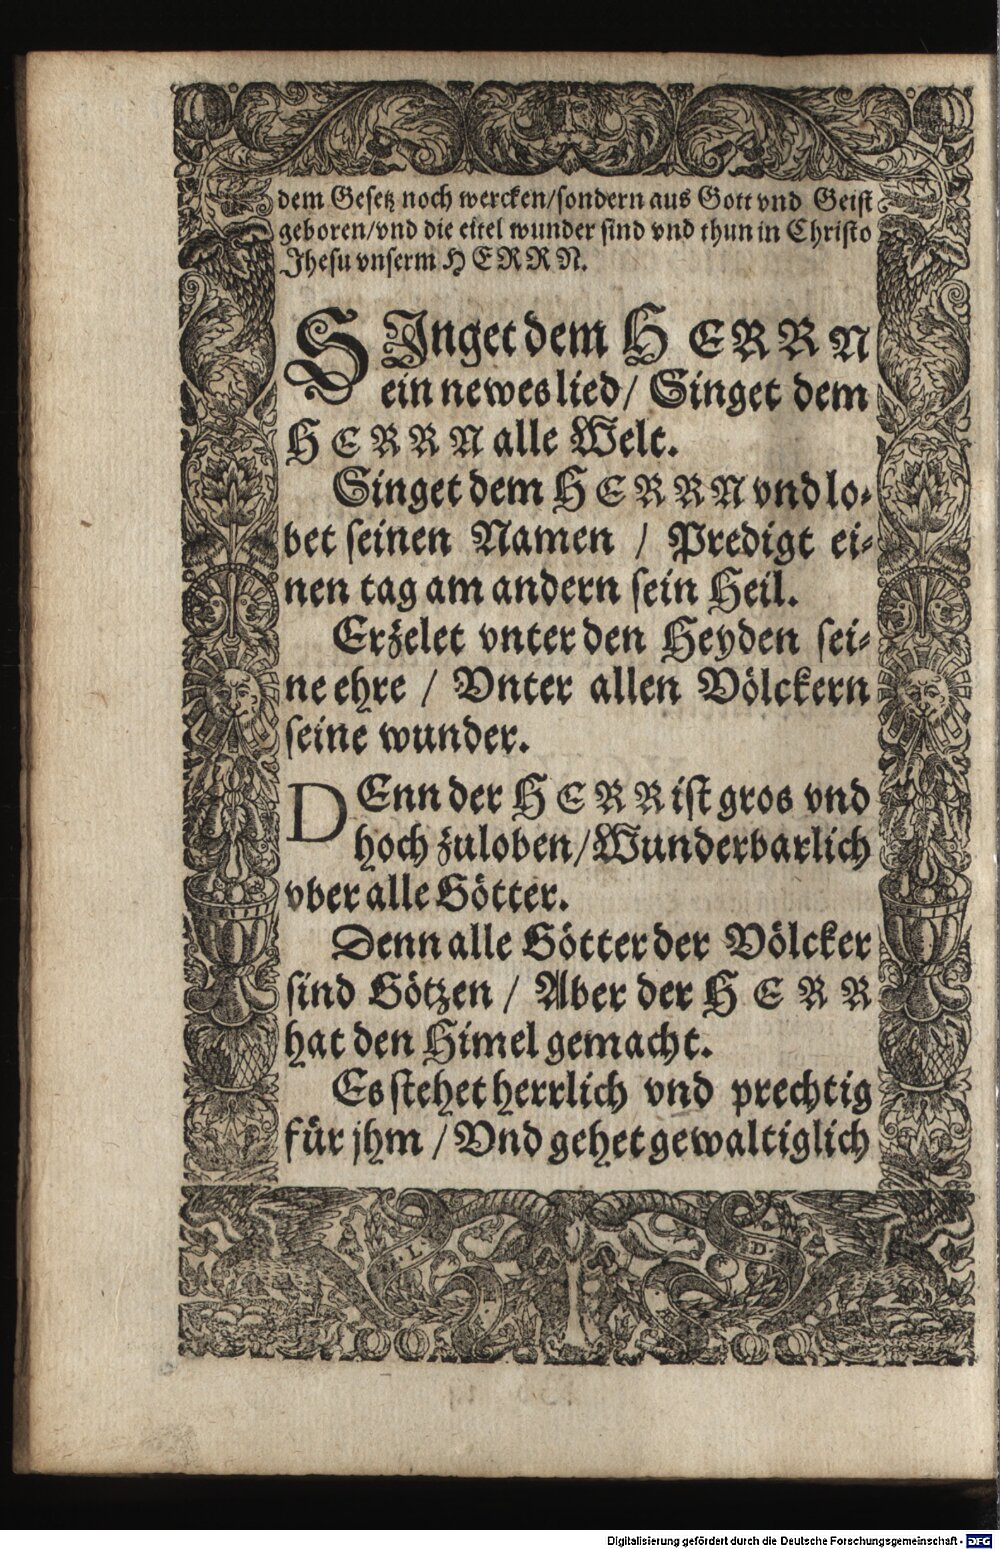 dem Gesetz noch wercken/sondern aus Gott vnd Geist
geboren/vnd die eitel wunder sind vnd thun in Christo
Jhesu vnserm HERRN.
SInget dem HERRN
ein newes lied/ Singet dem
HERRN alle Welt.
Singet dem HERRN vnd lo-
bet seinen Namen / Predigt ei-
nen tag am andern sein Heil.
Erzelet vnter den Heyden sei-
ne ehre / Vnter allen Völckern
seine wunder.
DEnn der HERR ist gros vnd
hoch zuloben/Wunderbarlich
vber alle Götter.
Denn alle Götter der Völcker
sind Götzen / Aber der HERR
hat den Himel gemacht.
Es stehet herrlich vnd prechtig
für jhm / Vnd gehet gewaltiglich
L D
Digitalisierung gefördert durch die Deutsche Forschungsgemeinschaft - DFG